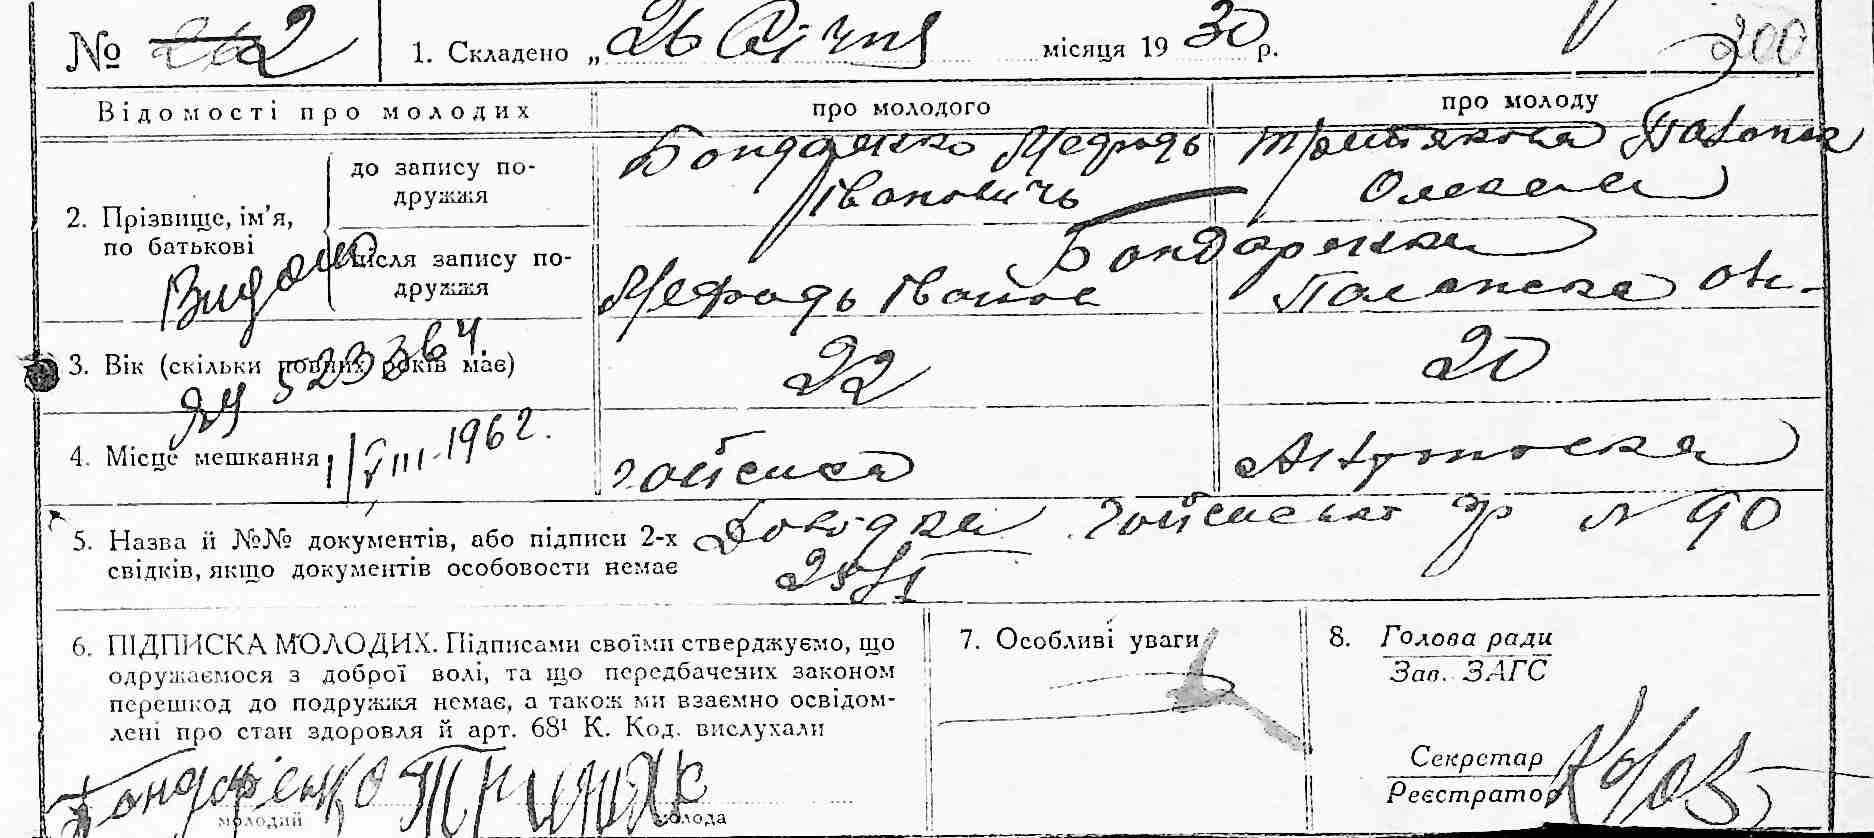 № 2 1. Складено „ 26 Січня місяця 19 30 р. 200
Відомості про молодих про молодого про молоду
2. Прізвище, ім’я, по батькові
до запису по-
дружжя
Бондаренко Мефодь
Івановичь
Третякова
після запису по-
дружжя
Бондаренка
Мефодь
Видано
ЯЧ 523364.
1/VIII-1962.
3. Вік (скільки повних років має) 22 20
4. Місце мешкання гайсина
5. Назва й №№ документів, або підписи 2-х
свідків, якщо документів особовости немає
Довідка N 90
25/I
6. ПІДПИСКА МОЛОДИХ. Підписами своїми стверджуємо, що
одружаємося з доброї волі, та що передбачених законом
перешкод до подружжя немає, а також ми взаємно освідом-
лені про стан здоровля й арт. 68¹ К. Код. вислухали
Бондаренко
молодий молода
7. Особливі уваги
8. Голова ради
Зав. ЗАГС
Секретар
Реєстратор